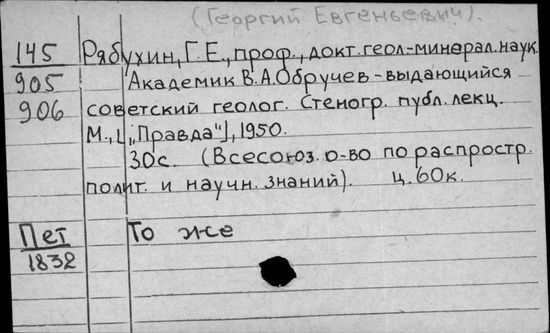 (Георгий Евгеньевич).
145 Рябухин, Г.Е., проф., докт. геол-минерал. наук.
905 Академик В.А.Обручев - выдающийся
906 советский геолог. Стеногр. публ. лекц.
М., [„Правда"], 1950.
30с. (Всесоюз. о-во по распростр.
полит. и научн. знаний). ц. 60к.
Пет То же
1832